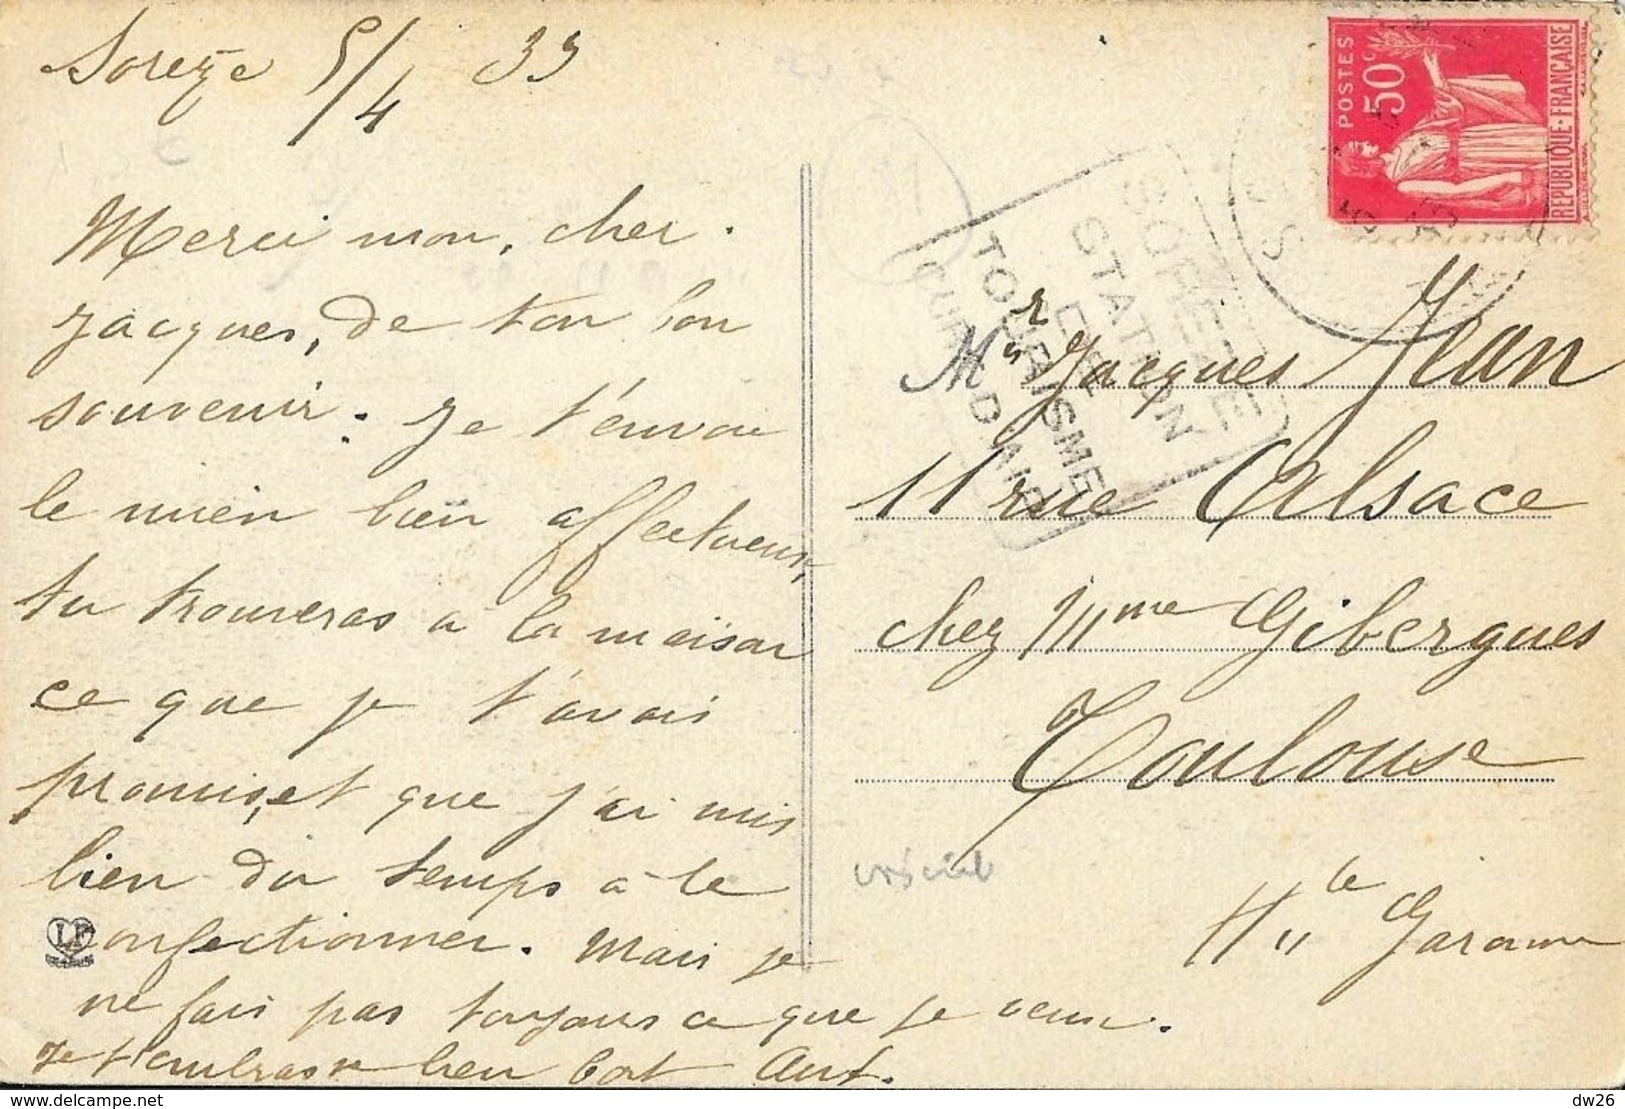 Sorèze 5/4 33
Merci mon, cher.
Jacques, de ton bon
souvenir. Je t'envoie
le mien bien affectueux,
tu trouveras à la maison
ce que je t'avais
promis, et que j'ai mis
bien du temps à le
confectionner. Mais je
ne fais pas toujours ce que je veux.
Je t'embrasse bien fort
LF
POSTES
50c
REPUBLIQUE-FRANÇAISE
SOREZE
STATION
TOURISME
CURE D'AIR
Mr Jacques Jean
11 rue Alsace
chez Mme Gibergues
Toulouse
Hte Garonne
dw26